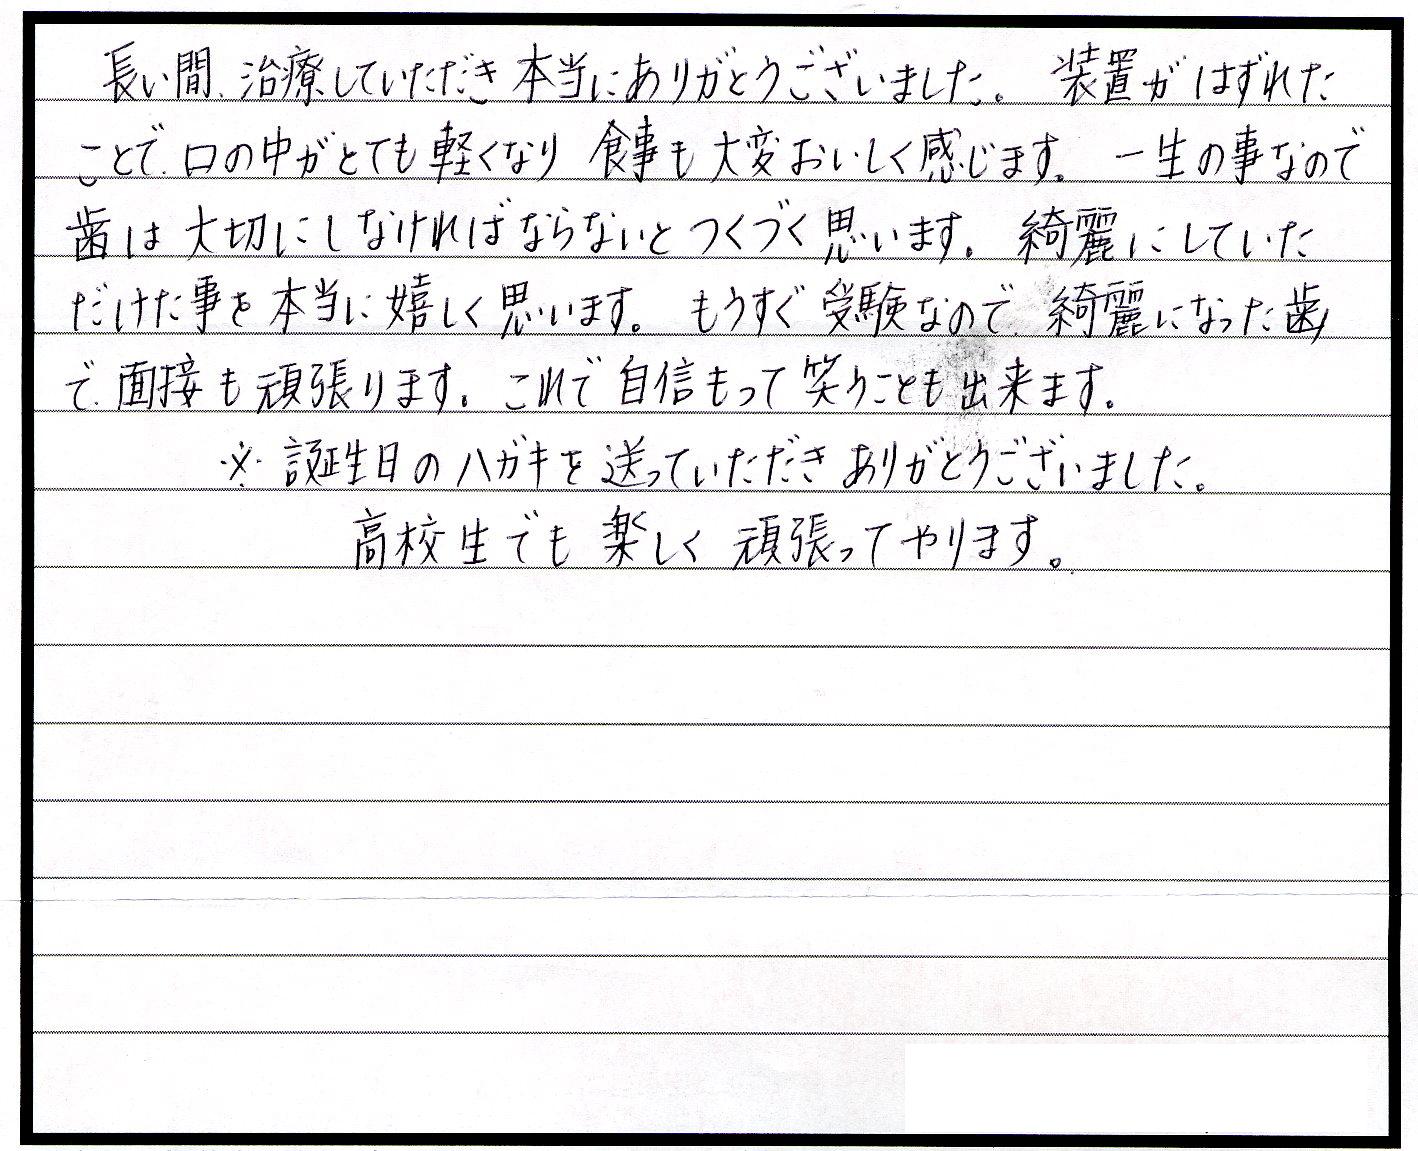 長い間、治療していただき本当にありがとうございました。 装置がはずれた
ことで、口の中がとても軽くなり 食事も大変おいしく感じます。 一生の事なので
歯は大切にしなければならないとつくづく思います。 綺麗にしていた
だけた事を本当に嬉しく思います。 もうすぐ受験なので、綺麗になった歯
で、面接も頑張ります。これで自信もって笑うことも出来ます。
※ 誕生日のハガキを送っていただきありがとうございました。
高校生でも楽しく頑張ってやります。